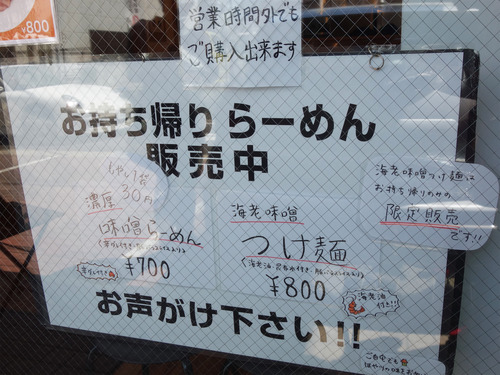 ¥800
営業時間外でも
ご購入出来ます
お持ち帰りらーめん
販売中
もやし1袋
30円
濃厚
味噌らーめん
¥700
海老味噌
つけ麺
¥800
海老油
付き!!
海老味噌つけ麺は
お持ち帰りのみの
限定販売
です!!
お声がけ下さい!!
ご自宅でも